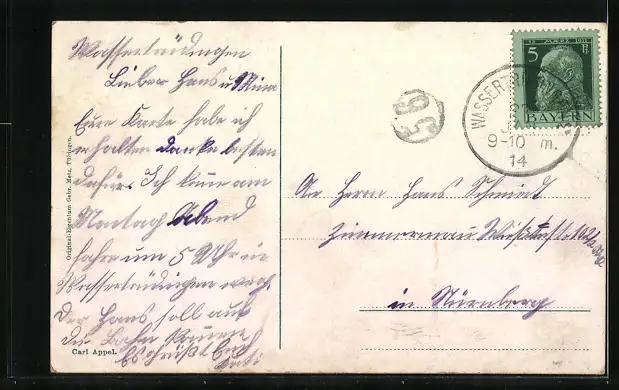 Wassertrüdingen
Lieber Hans u Mina
Eure Karte habe ich
erhalten danke besten
dafür. Ich komme am
Montag Abend
fahre um 5 Uhr in
Wassertrüdingen weg.
Der Hans soll auf
die Bahn kommen
Es grüßt Euch
Original-Eigentum Gebr. Metz, Tübingen.
Carl Appel.
36
5
BAYERN
WASSERTR
9-10 m.
14
An Herrn Hans Schmidt
Zimmermann
in Nürnberg